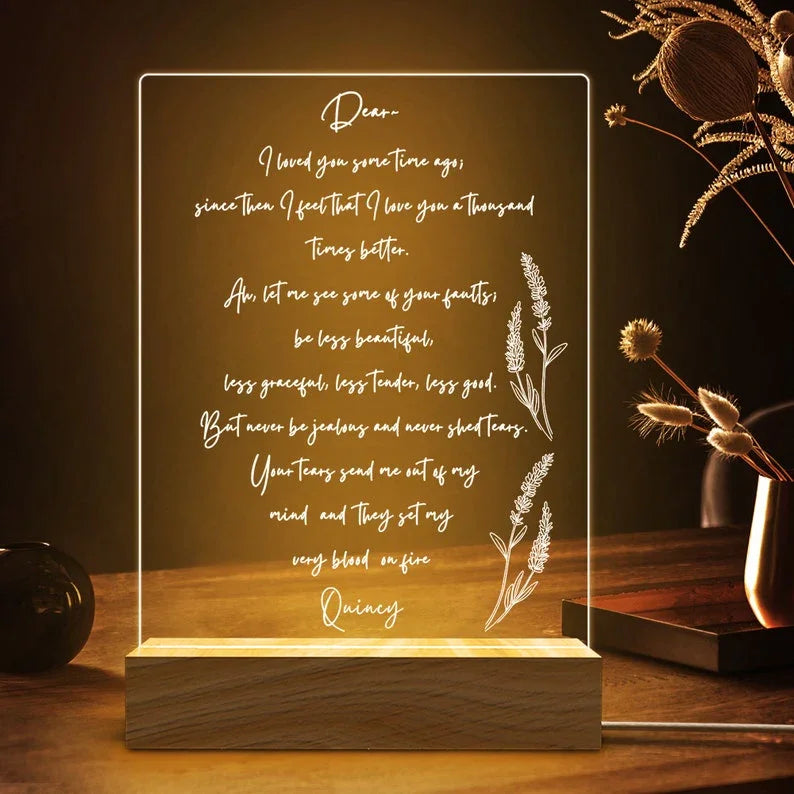 Dear~
I loved you some time ago;
since then I feel that I love you a thousand
times better.
Ah, let me see some of your faults;
be less beautiful,
less graceful, less tender, less good.
But never be jealous and never shed tears.
Your tears send me out of my
mind and they set my
very blood on fire
Quincy